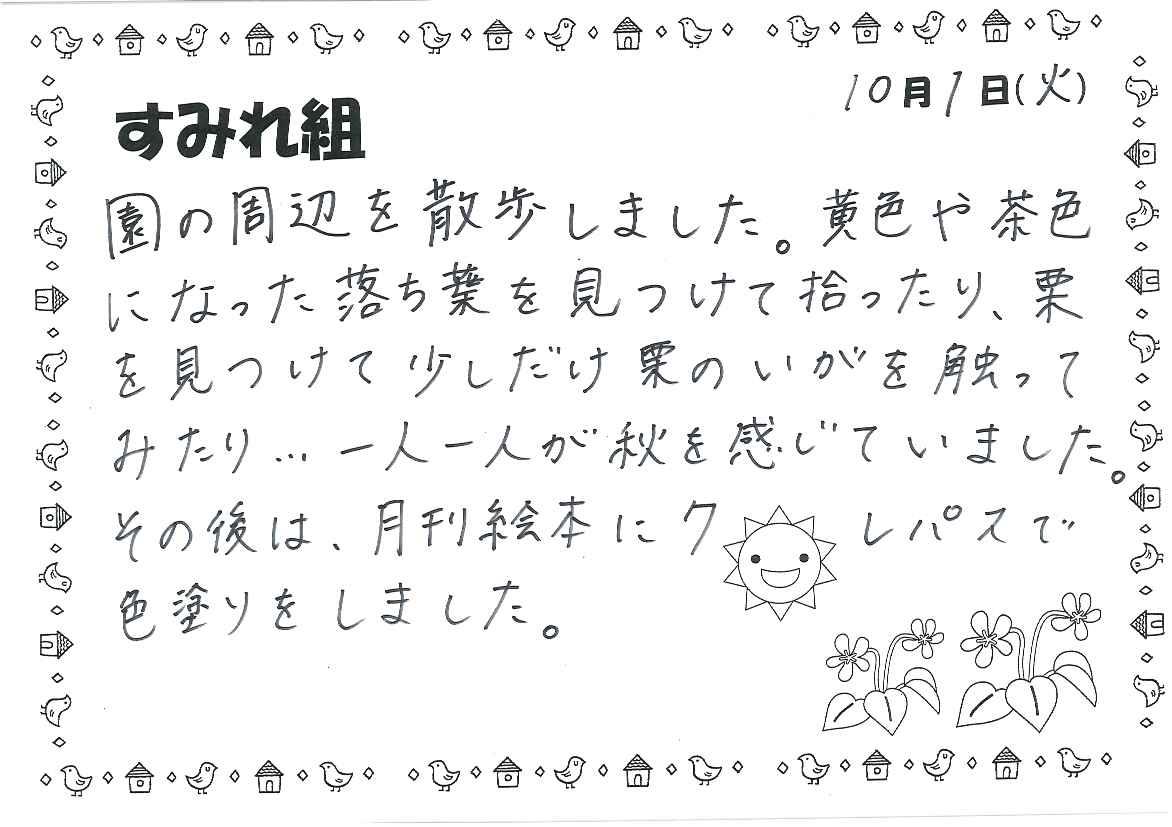 10月1日(火)
すみれ組
園の周辺を散歩しました。黄色や茶色
になった落ち葉を見つけて拾ったり、栗
を見つけて少しだけ栗のいがを触って
みたり…一人一人が秋を感じていました。
その後は、月刊絵本にク レパスで
色塗りをしました。